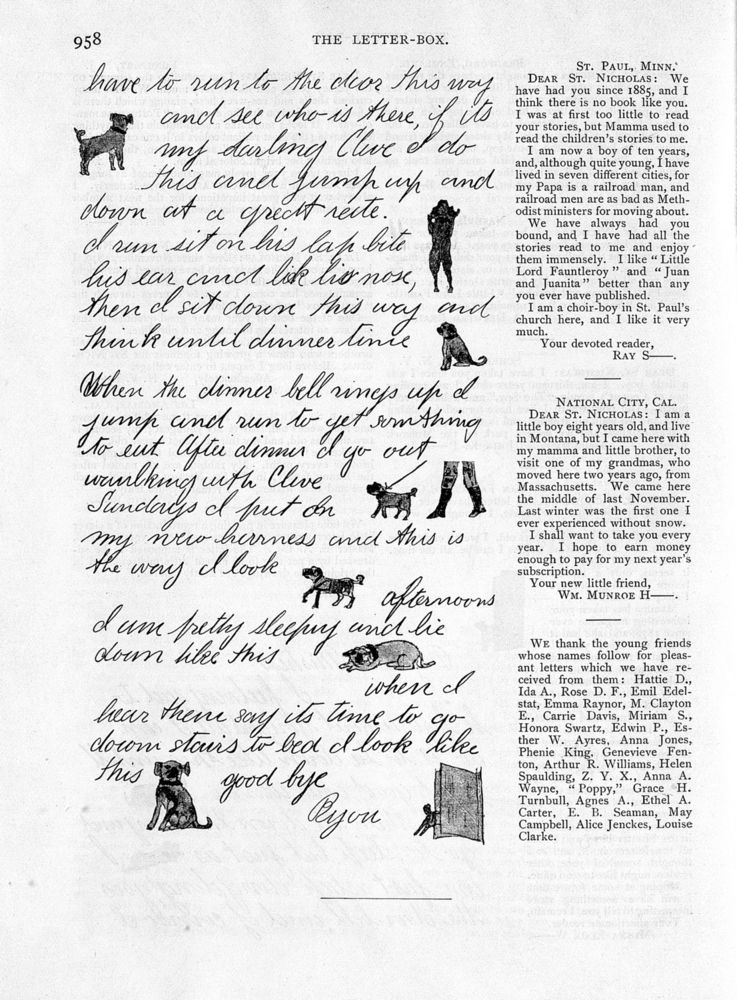 958
THE LETTER-BOX.
have to run to the door this way
and see who is there, if its
my darling Clive I do
this and jump up and
down at a great rate.
I run sit on his lap bite
his ear and lick his nose,
then I sit down this way and
think until dinner time
When the dinner bell rings up I
jump and run to get somthing
to eat After dinner I go out
waulking with Clive
Sundays I put on
my new harness and this is
the way I look
afternoons
I am pretty sleepy and lie
down like this
when I
hear them say its time to go
down stairs to bed I look like
this good bye
ST. PAUL, MINN.
DEAR ST. NICHOLAS: We
have had you since 1885, and I
think there is no book like you.
I was at first too little to read
your stories, but Mamma used to
read the children's stories to me.
I am now a boy of ten years,
and, although quite young, I have
lived in seven different cities, for
my Papa is a railroad man, and
railroad men are as bad as Meth-
odist ministers for moving about.
We have always had you
bound, and I have had all the
stories read to me and enjoy
them immensely. I like "Little
Lord Fauntleroy" and "Juan
and Juanita" better than any
you ever have published.
I am a choir-boy in St. Paul's
church here, and I like it very
much.
Your devoted reader,
RAY S——.
NATIONAL CITY, CAL.
DEAR ST. NICHOLAS: I am a
little boy eight years old, and live
in Montana, but I came here with
my mamma and little brother, to
visit one of my grandmas, who
moved here two years ago, from
Massachusetts. We came here
the middle of last November.
Last winter was the first one I
ever experienced without snow.
I shall want to take you every
year. I hope to earn money
enough to pay for my next year's
subscription.
Your new little friend,
WM. MUNROE H——.
WE thank the young friends
whose names follow for pleas-
ant letters which we have re-
ceived from them: Hattie D.,
Ida A., Rose D. F., Emil Edel-
stat, Emma Raynor, M. Clayton
E., Carrie Davis, Miriam S.,
Honora Swartz, Edwin P., Es-
ther W. Ayres, Anna Jones,
Phenie King, Genevieve Fen-
ton, Arthur R. Williams, Helen
Spaulding, Z. Y. X., Anna A.
Wayne, "Poppy," Grace H.
Turnbull, Agnes A., Ethel A.
Carter, E. B. Seaman, May
Campbell, Alice Jenckes, Louise
Clarke.